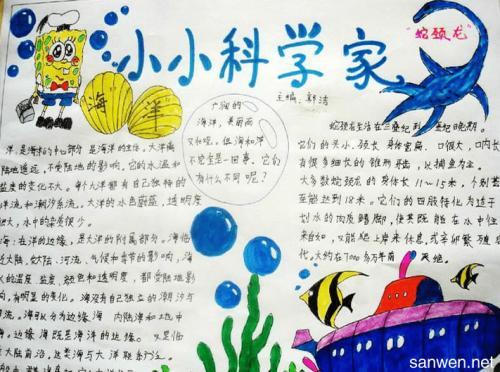 小小科学家
"蛇颈龙"
海洋
主编:郭洁
广阔的
海洋,美丽而
又和
海和洋
不完全是一回事。它们
有什么不同呢?
洋,是海洋的中心部分,是海洋的主体。大洋离
陆地遥远,不受陆地的影响。它的水温和
盐度的变化不大。每个大洋都有自己独特的
洋流和潮汐系统。大洋的水色蔚蓝,透明度
很大,水中的杂质很少。
海:在洋的边缘,是大洋的附属部分。海临
近大陆,受大陆、河流、气候和季节的影响,海
水的温度、盐度、颜色和透明度,都受陆地影
响,有明显的变化。海没有自己独立的潮汐与
海流。海可以分为边缘海、内陆海和
海。边缘海既是海洋的边缘,又是临
近大陆前沿,这类海与大洋联系
蛇颈龙生活在三叠纪到
纪晚期。
它们的头小,颈长,身体宽扁,口很大,口内长
有很多细长的锥形牙齿,以捕鱼为生。
大多数蛇颈龙的身体长11~15米,个别甚
至能达到18米。它们的四肢特化为适于
划水的肉质鳍脚,使其既能在水中往
来自如,又能爬上岸来休息,或产卵繁殖
代,大约在7000多万年前灭绝。
sanwen.net